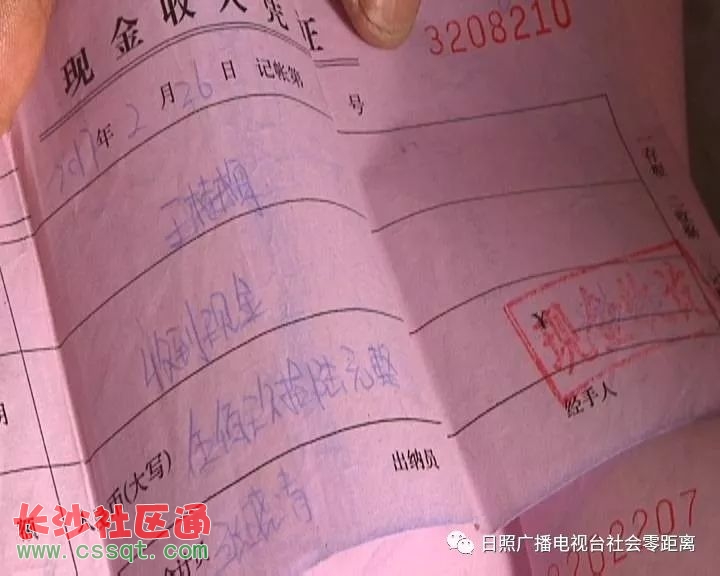 现金收入凭证
3208210
2017年2月26日 记帐第 号
收到现金
伍佰玖拾陆元整
币(大写)
出纳员
经手人
一存根 二收据
¥
现金收讫
月
长沙社区通
www.cssqt.com
日照广播电视台社会零距离